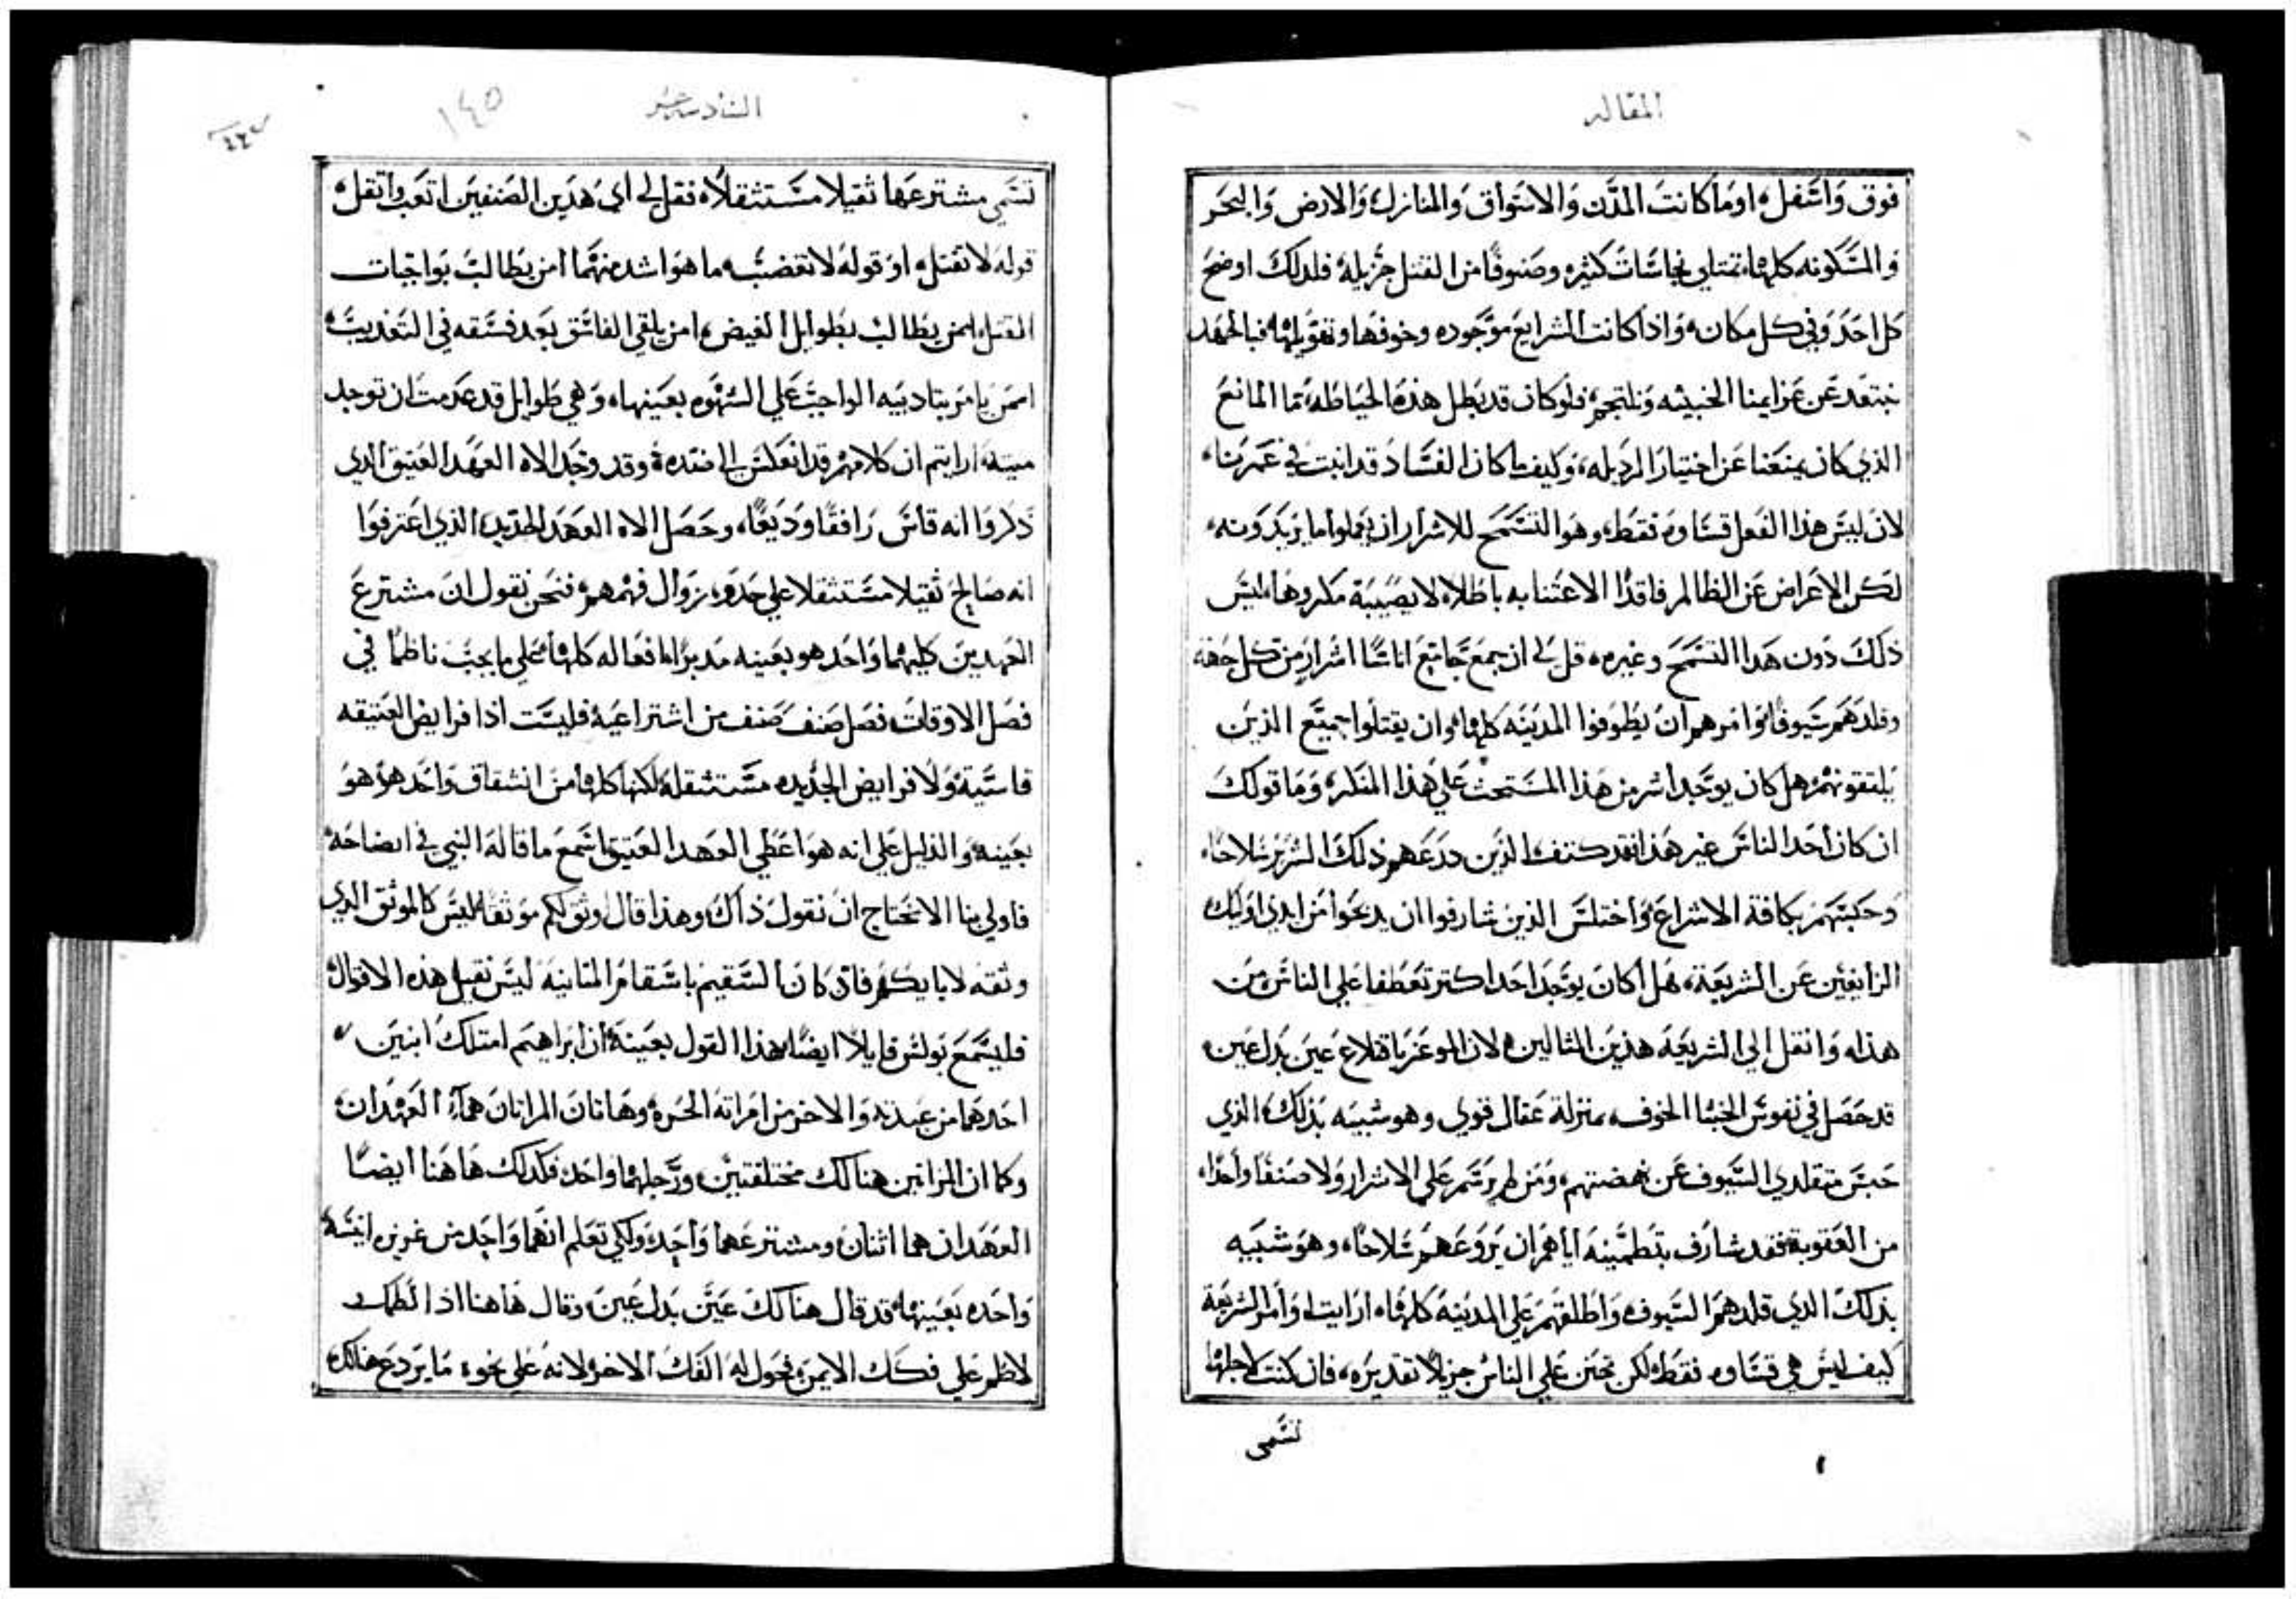 المقاله
فوق واسفل، اوما كانت المدن والاسواق والمنازل، والارض والبحر
والمسكونه كلها، تمتلي نجاسات كثيره وصنوفًا من القتل جزيله، فلدلك اوضح
كل احد وفي كل مكان، واذا كانت الشرايع موجوده وخوفها وتهويلها، فبالجهد
نبتعد عن عزايمنا الخبيثه ونلتجم، فلو كان قد بطل هذه الحياطه، فما المانع
الذي كان يمنعنا عن اختيار الرديله، وكيف ما كان الفساد قد انبت في عمرنا،
لان ليس هذا الفعل قساوه فقط، وهو التسمح للاشرار ان يعملوا ما يريدونه،
لكن الاعراض عن الظالم فاقدًا الاعتنا به باطلاه لا يصيبه مكروها، ليس
ذلك دون هدا التسمح وغيره، قل لي ان جمع جامع اناسًا اشرار من كل جهة
وقلدهم سيوفًا، وامرهم ان يطوفوا المدينه كلها، وان يقتلوا جميع الذين
يلتقونهم، هل كان يوجد اشر من هذا المستحث علي هذا المنكر، وما قولك
ان كان احد الناس غير هذا فقد كتف الذين درعهم ذلك الشرير سلاحًا،
وحبسهم بكافة الاسراع، واختلس الذين شارفوا ان يدعوا من ايدي اوليك
الزايغين عن الشريعة، هل كان يوجد احد اكتر تعطفا علي الناس من
هذا، وانقل الي الشريعه هذين المثالين، لان الموعز باقلاع عين بدل عين،
قد حصل في نفوس الخبثا الخوف، بمنزلة عقال قوي وهو شبيه بذلك، الذي
حبس متقلدي السيوف عن نهضتهم، ومن لم يرسم علي الاشرار ولا صنفًا واحدًا،
من العقوبة فقد شارف بتطمينه اياهم ان يروعهم سلاحًا، وهو شبيه
بذلك الدي قلدهم السيوف واطلقهم علي المدينه كلها، ارايت اوامر الشريعة
كيف ليس هي قساوه فقط، لكن تحنن علي الناس جزيلا تقديره، فان كنت لاجلها
تسمي
السادسه عشر
١٤٥
تسمي مشترعها ثقيلا مستثقلا، فقل لي اي هدين الصنفين اتعب واتقل،
قوله لا تقتل، او قوله لا تغضب، ما هو اشد منهما امن يطالب بواجبات
القتل، امن يطالب بطوايل الغيض، امن يلقي الفاسق بعد فسقه في التعديب،
امن يامر بتاديبه الواجب علي الشهوه بعينها، وهي طوايل قد عدمت ان توجد
ميته، ارايتم ان كلامهم قد انعكس الي ضده، وقد وجد الاه العهد العتيق الدي
ذكروا انه قاس رافقًا وديعًا، وحصل الاه العهد الجديد، الذي اعترفوا
انه صالح ثقيلا مستثقلا علي حدو، زوال فهمهم، فنحن نقول ان مشترع
العهدين كليهما واحد هو بعينه مدبرًا افعاله كلها، علي ما يجب ناظمًا في
فصل الاوقات فصل صنف صنف من اشتراعيه، فليست اذا فرايض العتيقه
قاسية، ولا فرايض الجديده مستثقله، لكنها كلها من انشقاق واحد هو هو
بعينه، والدليل علي انه هو اعطي العهد العتيق، اسمع ما قاله النبي في ايضاحه،
فاولي بنا الا نحتاج ان نقول ذاك، وهذا قال اوثق لكم موثقًا، ليس كالموثق الدي
وثقته لابايكم، فان كان السقيم باسقام المنانية ليس نقبل هذه الاقوال،
فليسمع بولس قايلا ايضًا، هذا القول بعينه، ان ابراهيم امتلك ابنين،
احدهما من عبدته، والاخر من امراته الحره، وهاتان المراتان هما، العهدان،
وكما ان المراتين هنالك مختلفتين، ورجلهما واحد، فكدلك هاهنا ايضًا
العهدان هما اثنان، ومشترعهما واحد، ولكي تعلم انهما واحد من غريزة انيسه
واحده بعينها، قد قال هنالك عين بدل عين، وقال هاهنا اذا لطمك
لاطم علي فكك الايمن، فحول له الفك الاخر، لانه علي نحو، ما يردع هنالك،